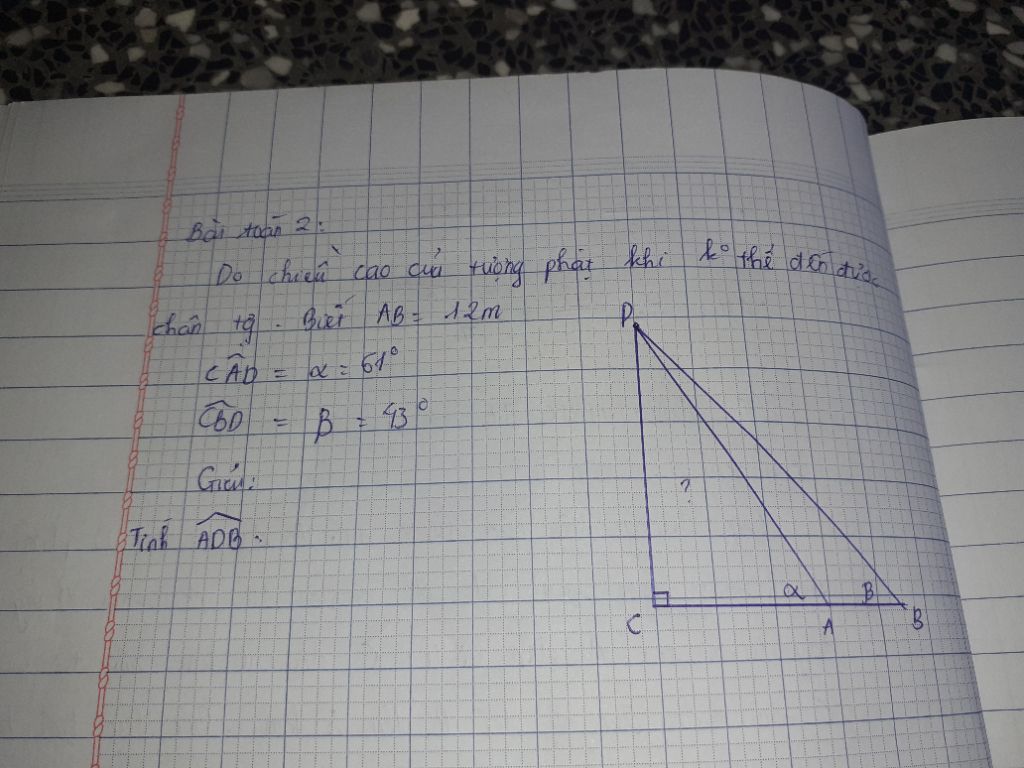 Bài toán 2:
Đo chiều cao của tượng phật khi k° thể đến được
chân tg. Biết AB = 12m
CAD = α = 61°
CBD = β = 43°
Giải:
Tính ADB.
D
?
α
B
C
A
B